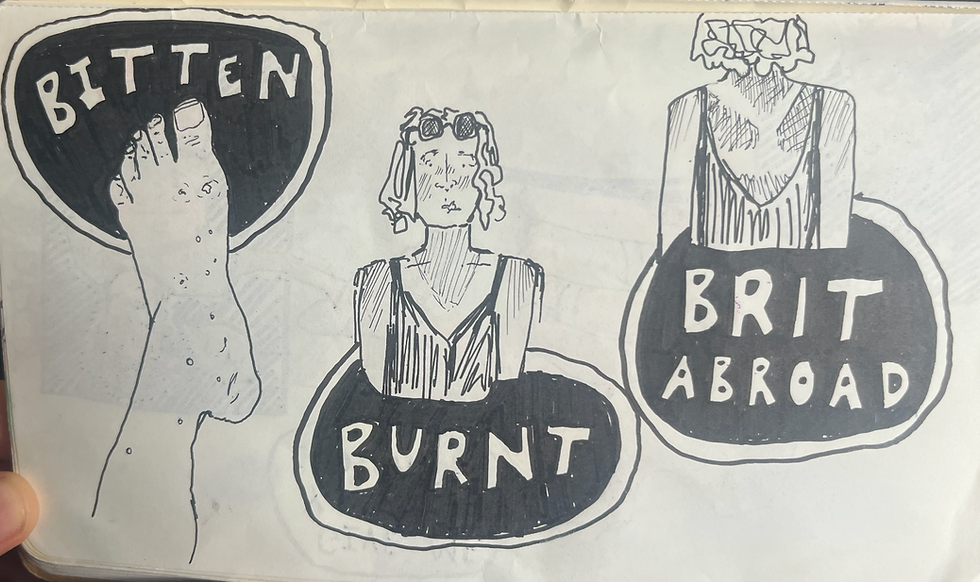 BITTEN
BURNT
BRIT
ABROAD